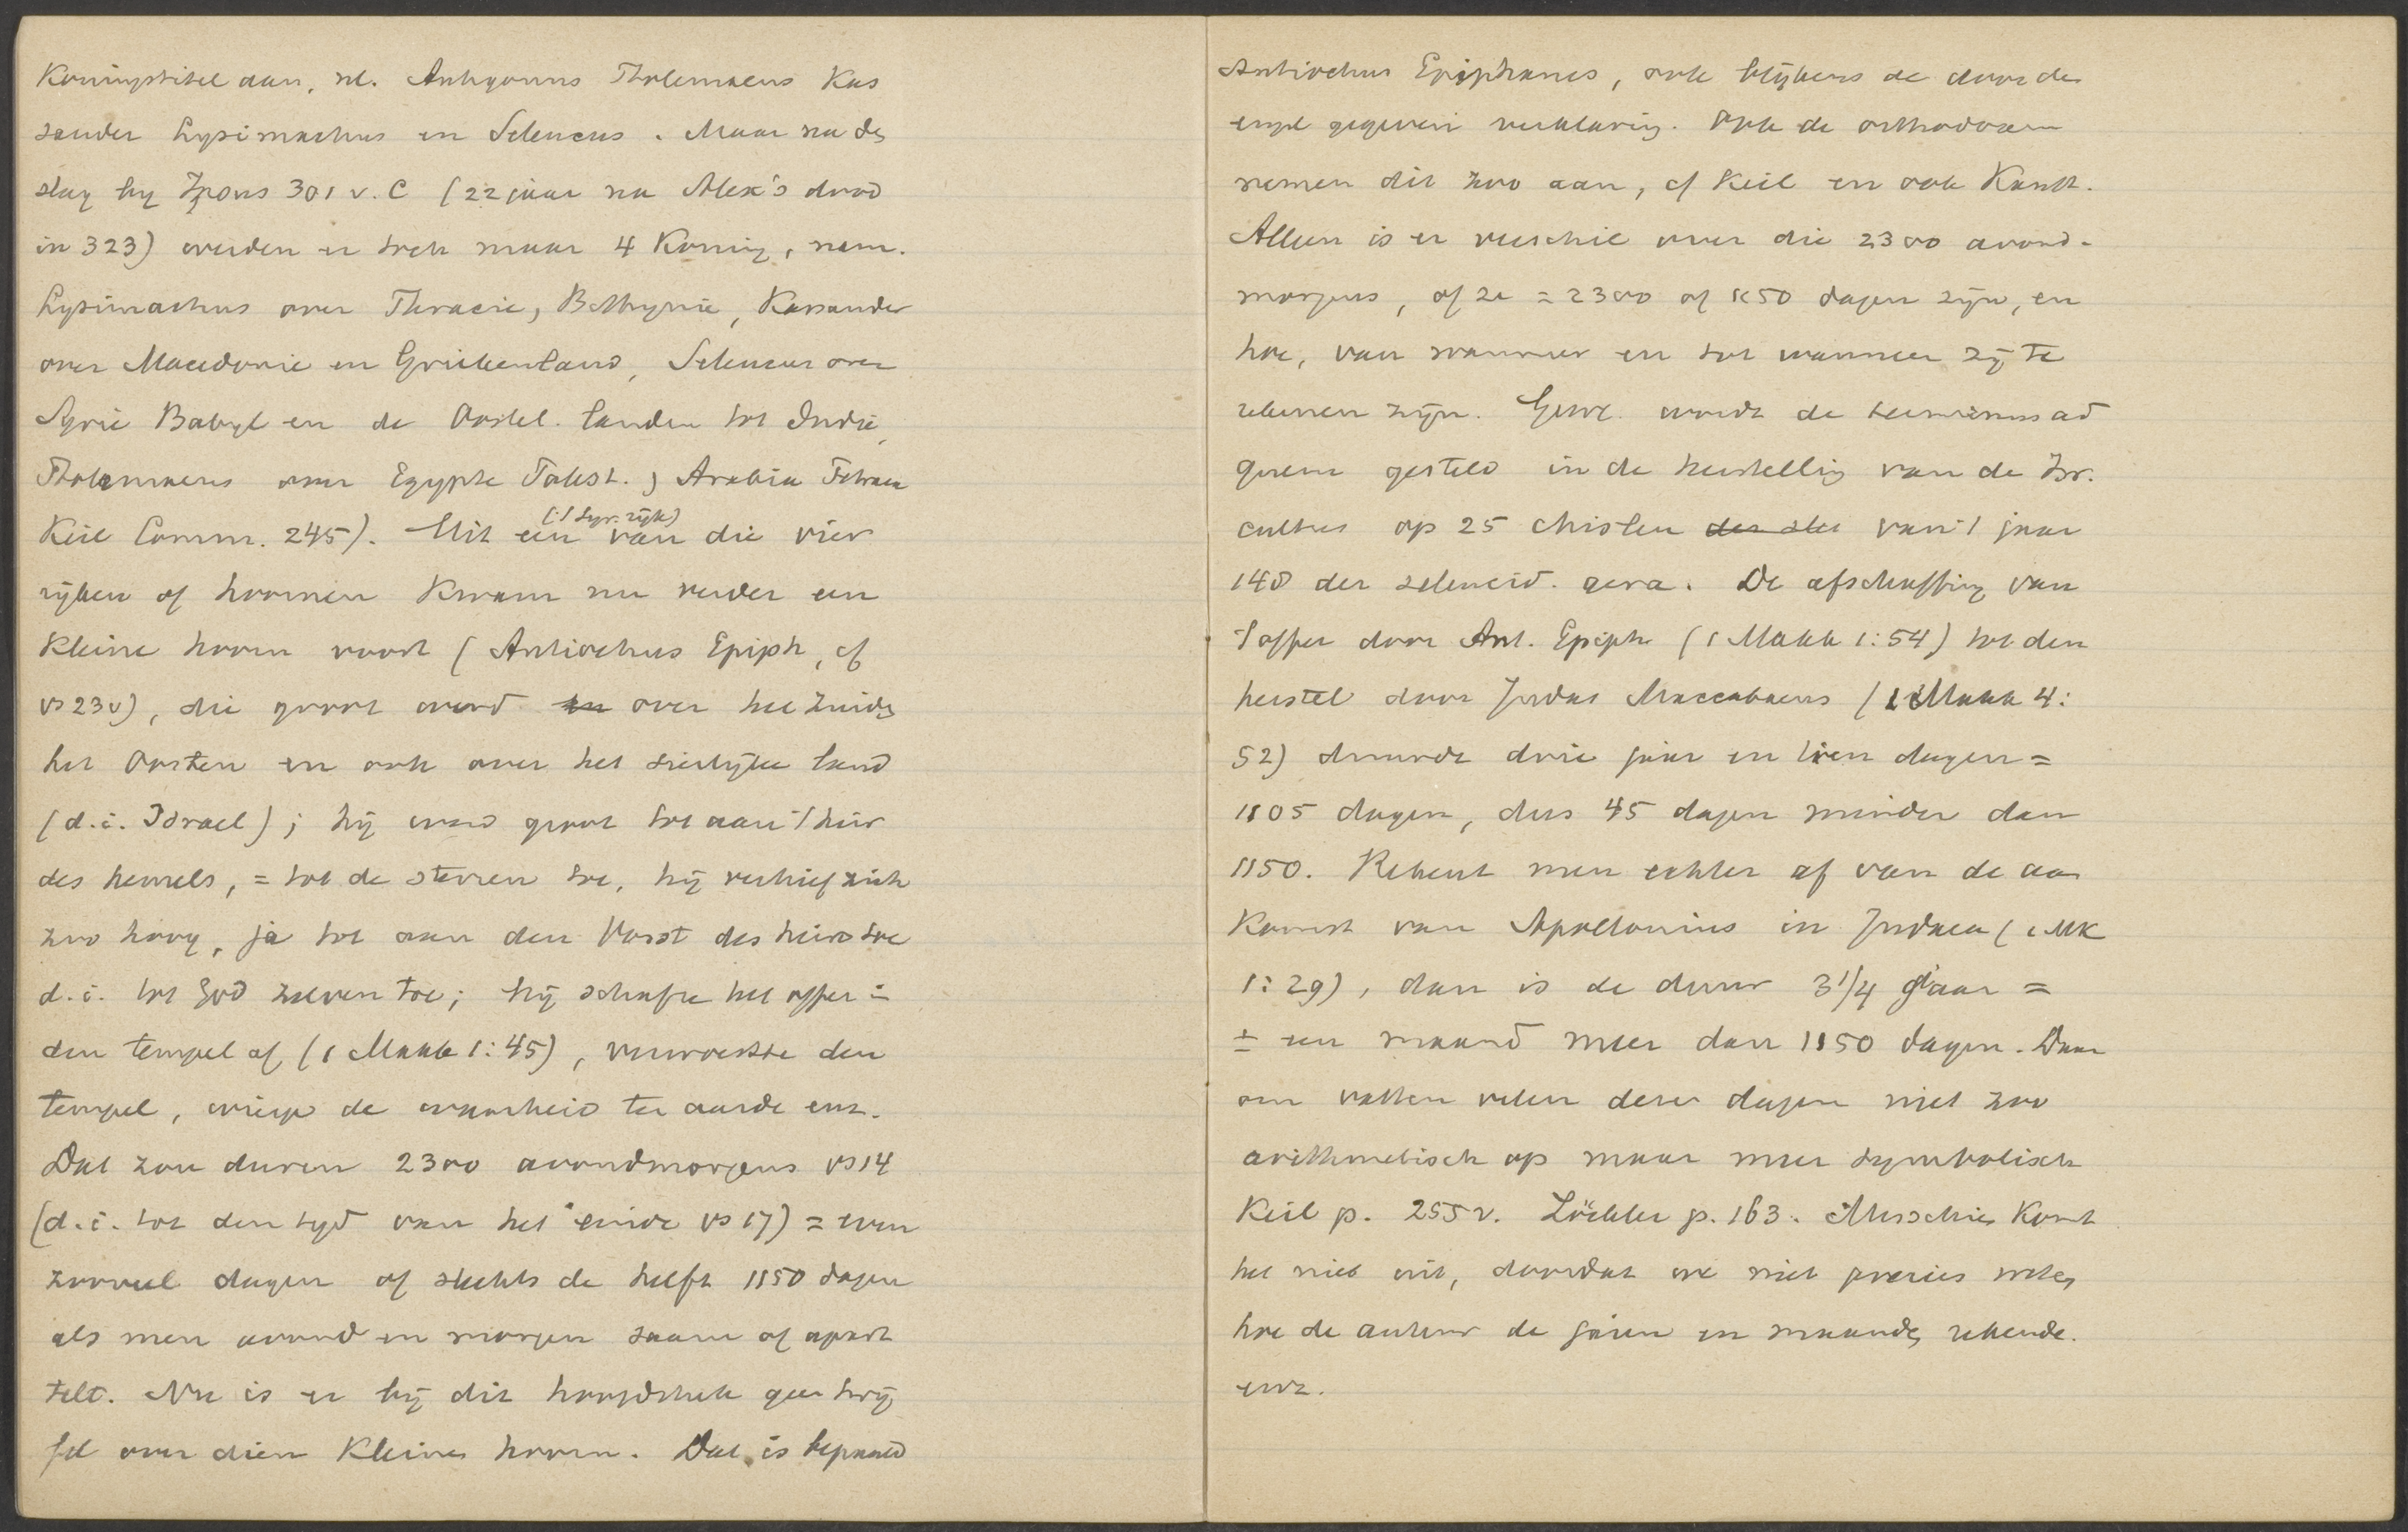 Koningstitel aan, nl. Antigonus Ptolemaeus Kas
sander Lysimachus en Seleucus. Maar na de
slag bij Ipsus 301 v. C (22 jaar na Alex's dood
in 323) werden er toch maar 4 Koning, nam.
Lysimachus over Thracie, Bithynie, Kassander
over Macedonie en Griekenland, Seleucus over
Syrie Babyl en de Oostel. landen tot Indie,
Ptolemaeus over Egypte Palest., Arabia Petraea
Keil Comm. 245). Uit een van die vier
('t Syr. rijk)
rijken of hoornen Kwam nu verder een
Kleine hoorn voort (Antiochus Epiph, cf
vs 23v), die groot werd en over het zuiden
het Oosten en ook over het sierlijke land
(d.i. Israel); hij werd groot tot aan 't heir
des hemels, = tot de sterren toe, hij verhief zich
zoo hoog, ja tot aan den Vorst des heirs toe
d.i. tot God zelven toe; hij schafte het offer in
den tempel af (1 Makk 1:45), verwoestte den
tempel, wierp de waarheid ter aarde enz.
Dat zou duren 2300 avondmorgens vs 14
(d.i. tot den tijd van het einde vs 17) = even
zooveel dagen of slechts de helft 1150 dagen
als men avond en morgen saam of apart
telt. Nu is er bij dit hoofdstuk geen twij
fel over dien Kleinen hoorn. Dat is bepaald
Antiochus Epiphanes, ook blijkens de door den
engel gegeven verklaring. Ook de orthodoxen
nemen dit zoo aan, cf Keil en ook Kanst.
Alleen is er verschil over die 2300 avond-
morgens, of ze = 2300 of 1150 dagen zijn, en
hoe, van wanneer en tot wanneer zij te
rekenen zijn. Gew. wordt de terminus ad
quem gesteld in de herstelling van de Isr.
cultus op 25 Chisleu der sle van 't jaar
148 der seleucid. aera. De afschaffing van
't offer door Ant. Epiph (1 Makk 1:54) tot den
herstel door Judas Maccabaeus (1 Makk 4:
52) duurde drie jaar en tien dagen =
1105 dagen, dus 45 dagen minder dan
1150. Rekent men echter af van de aan
Komst van Apollonius in Judaea (1 MK
1:29), dan is de duur 3 1/4 jaar =
± een maand meer dan 1150 dagen. Daar
om vatten velen deze dagen niet zoo
arithmetisch op maar meer symbolisch
Keil p. 255v. Zöckler p. 163. Misschien Komt
het niet uit, doordat we niet precies weten
hoe de auteur de jaren en maanden rekende.
enz.